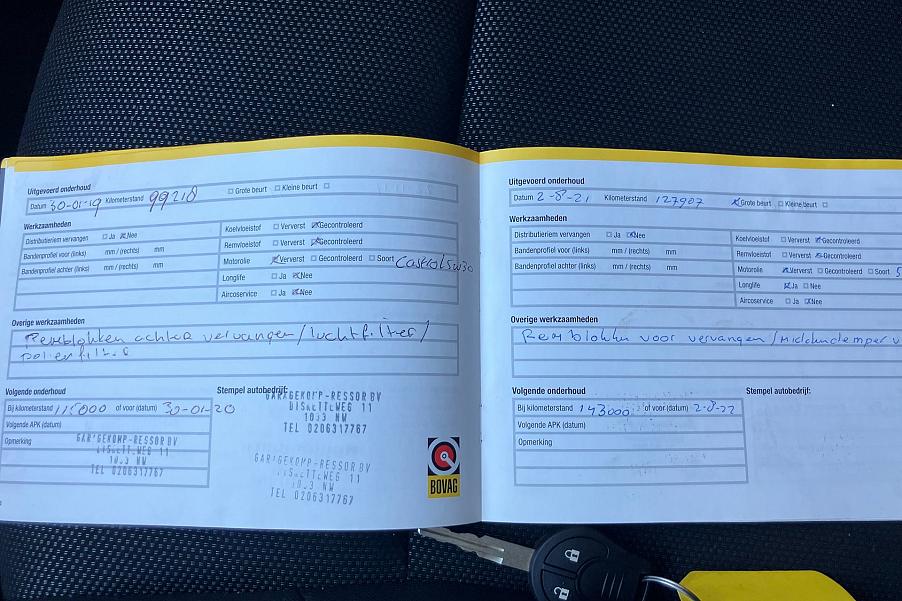 Uitgevoerd onderhoud
Datum 30-01-19 Kilometerstand 99218 Grote beurt Kleine beurt
Werkzaamheden
Distributieriem vervangen Ja Nee
Bandenprofiel voor (links) mm / (rechts) mm
Bandenprofiel achter (links) mm / (rechts) mm
Koelvloeistof Ververst Gecontroleerd
Remvloeistof Ververst Gecontroleerd
Motorolie Ververst Gecontroleerd Soort Castrol 5w30
Longlife Ja Nee
Aircoservice Ja Nee
Overige werkzaamheden
Remblokken achter vervangen/luchtfilter/
Volgende onderhoud
Bij kilometerstand 115000 of voor (datum) 30-01-20
Volgende APK (datum)
Opmerking
Stempel autobedrijf:
KOMP-RESSOR BV
WEG 11
NW
TEL 0206317767
KOMP-RESSOR BV
WEG 11
NW
TEL 0206317767
KOMP-RESSOR BV
WEG 11
NW
TEL 0206317767
BOVAG
Uitgevoerd onderhoud
Datum 2-8-21 Kilometerstand 127907 Grote beurt Kleine beurt
Werkzaamheden
Distributieriem vervangen Ja Nee
Bandenprofiel voor (links) mm / (rechts) mm
Bandenprofiel achter (links) mm / (rechts) mm
Koelvloeistof Ververst Gecontroleerd
Remvloeistof Ververst Gecontroleerd
Motorolie Ververst Gecontroleerd Soort 5
Longlife Ja Nee
Aircoservice Ja Nee
Overige werkzaamheden
Remblokken voor vervangen/Middendemper v
Volgende onderhoud
Bij kilometerstand 143000 of voor (datum) 2-8-22
Volgende APK (datum)
Opmerking
Stempel autobedrijf: